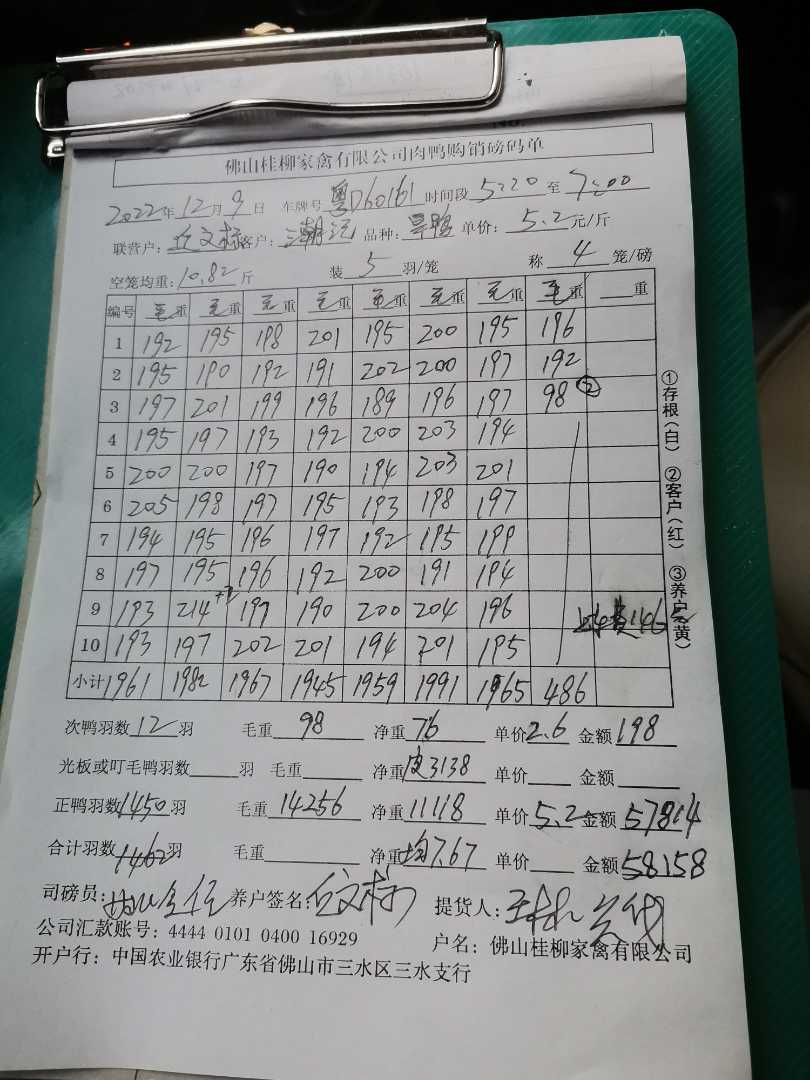 佛山桂柳家禽有限公司肉鸭购销磅码单
2022年12月9日 车牌号粤D60161时间段5:20至7:00
联营户: 丘文标 客户: 品种: 旱鸭 单价: 5.2元/斤
空笼均重: 10.82斤 装5羽/笼 称4笼/磅
编号 毛重 毛重 毛重 毛重 毛重 毛重 毛重 毛重 重
1 192 195 198 201 195 200 195 196
2 195 190 192 191 202 200 197 192
3 197 201 199 196 189 196 197 98②
4 195 197 193 192 200 203 194
5 200 200 197 190 194 203 201
6 205 198 197 195 193 198 197
7 194 195 196 197 192 195 199
8 197 195 196 192 200 191 194
9 193 214 197 190 200 204 196
10 193 197 202 201 194 201 195
小计 1961 1982 1967 1945 1959 1991 1965 486
①存根(白) ②客户(红) ③养户(黄)
次鸭羽数12羽 毛重98 净重76 单价2.6 金额198
光板或叮毛鸭羽数 羽 毛重 净重 皮3138 单价 金额
正鸭羽数1450羽 毛重14256 净重11118 单价5.2 金额57814
合计羽数1462羽 毛重 净重 均7.67 单价 金额58158
司磅员: 养户签名: 丘文标 提货人:
公司汇款账号: 4444 0101 0400 16929 户名: 佛山桂柳家禽有限公司
开户行: 中国农业银行广东省佛山市三水区三水支行